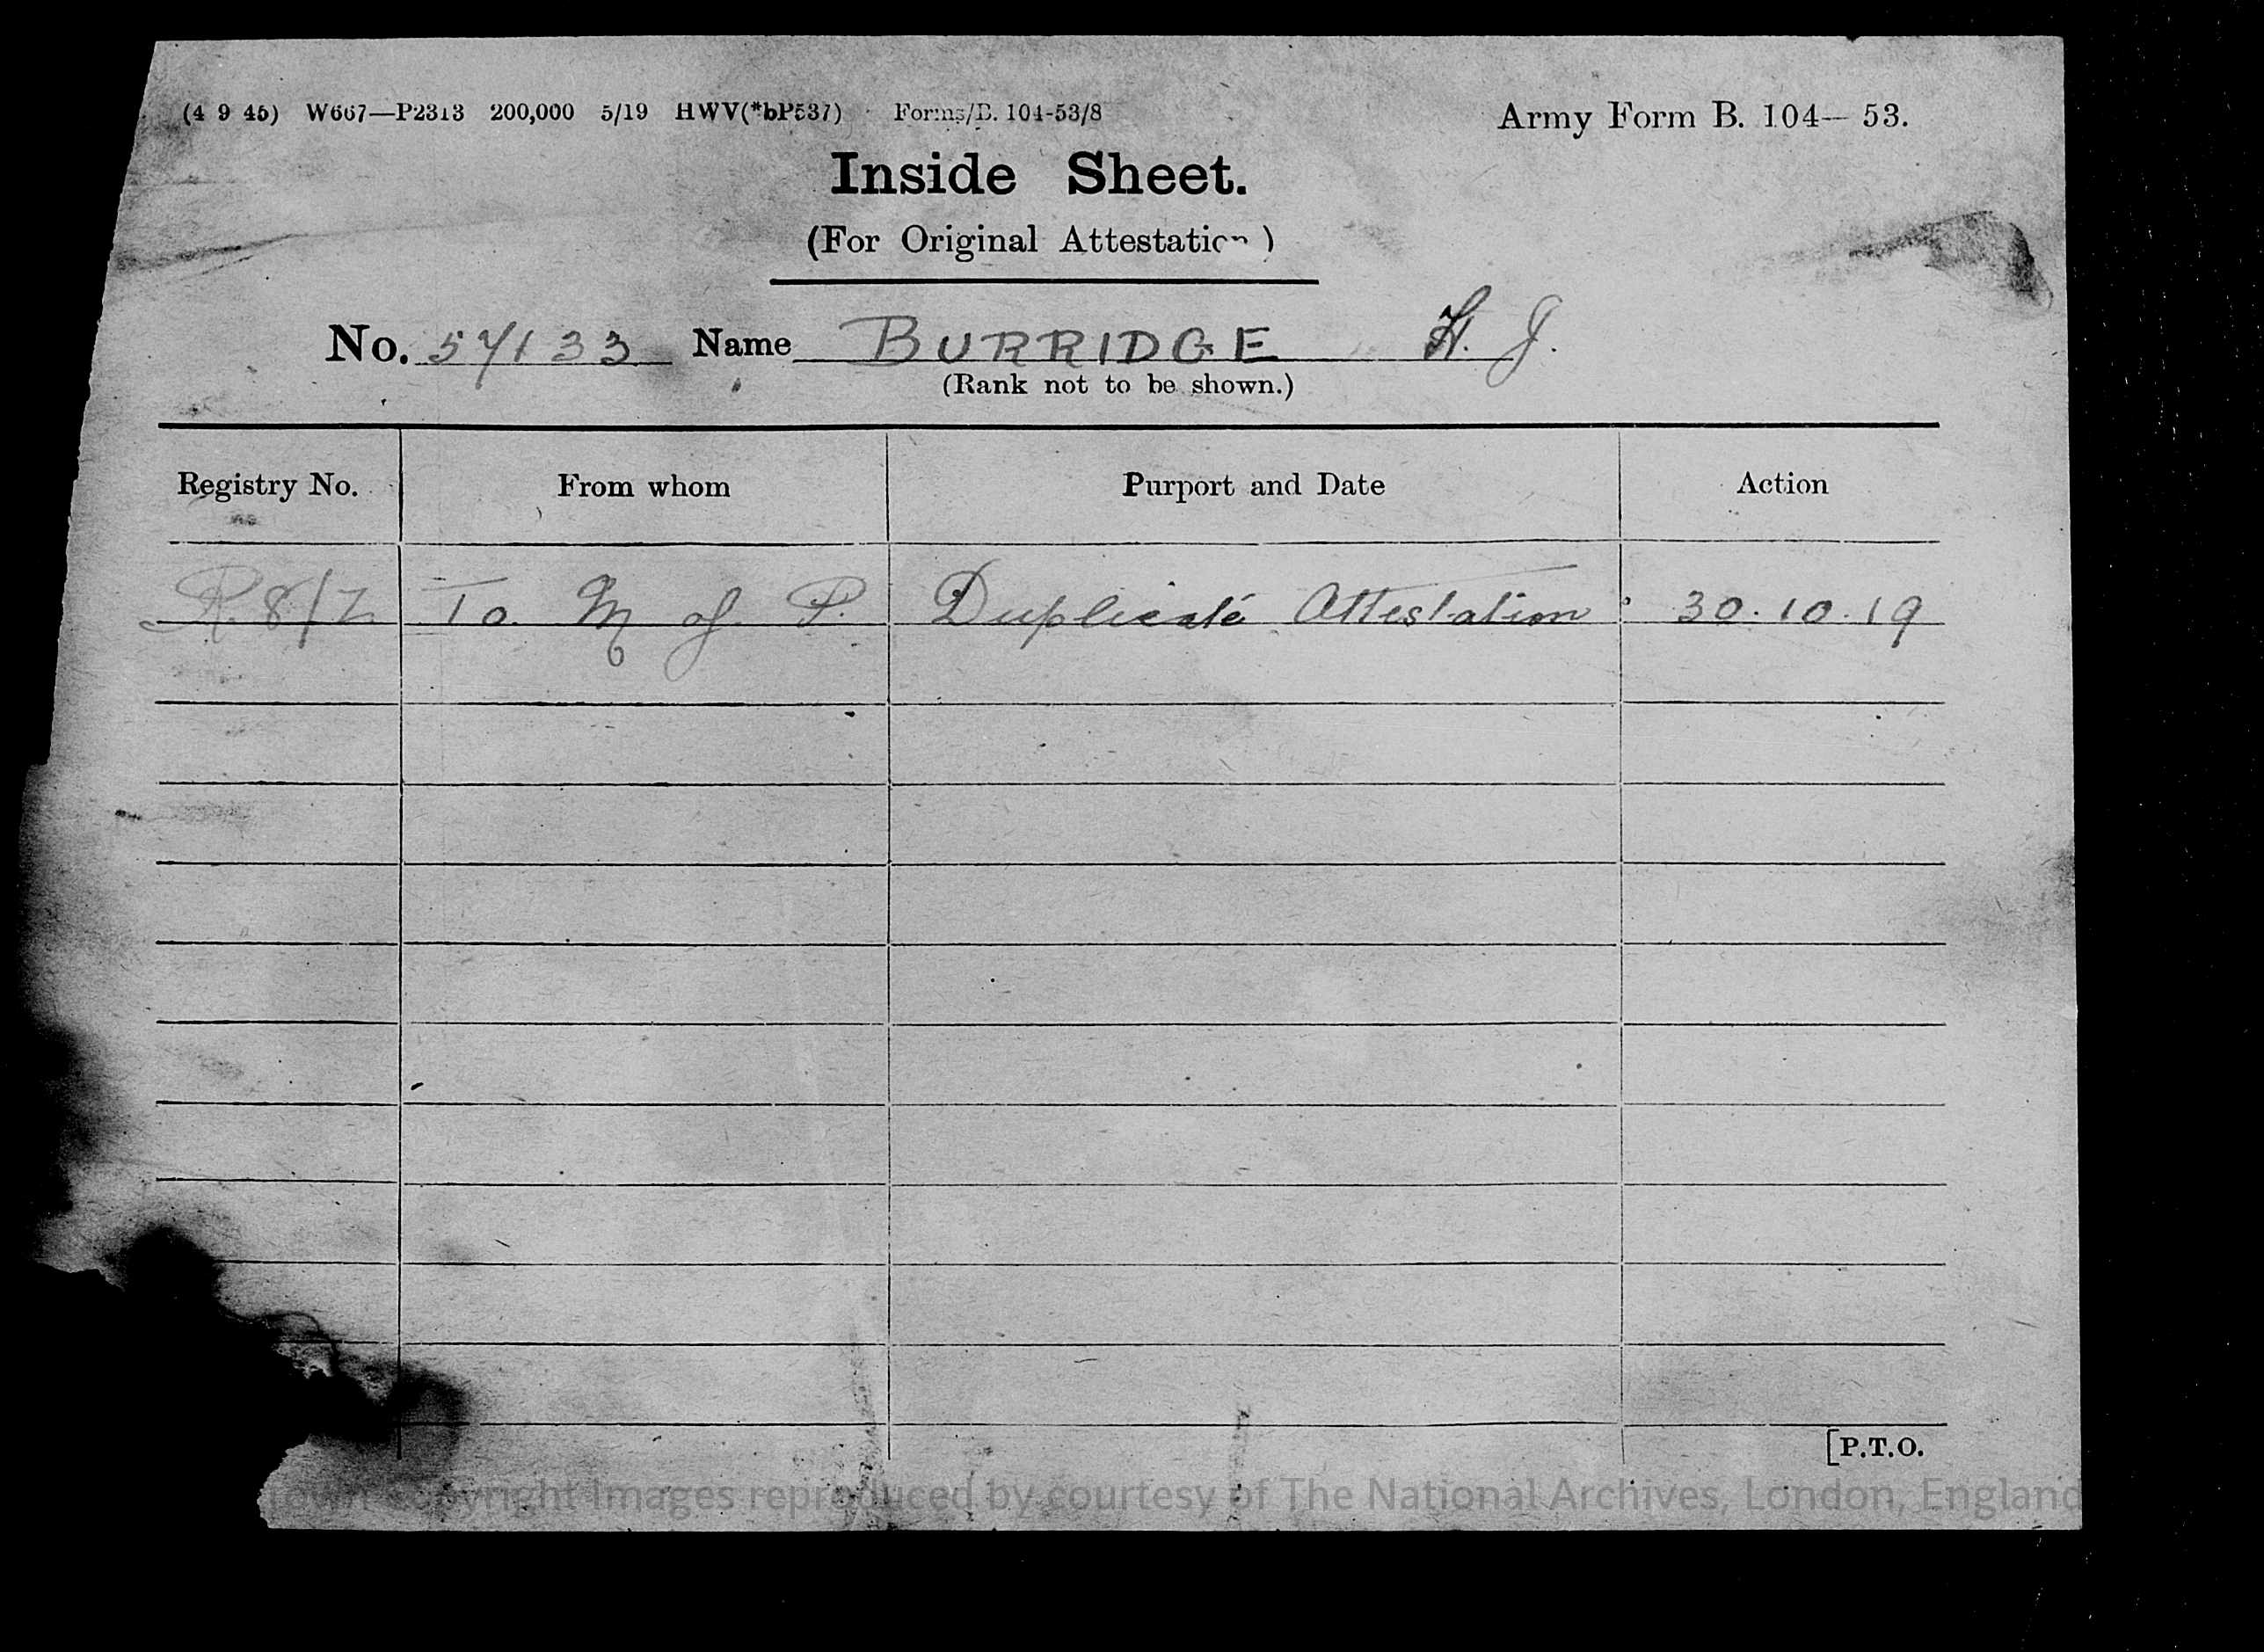 (4 9 45) W667—P2313 200,000 5/19 HWV(*bP537) Forms/B. 104-53/8
Army Form B. 104— 53.
Inside Sheet.
(For Original Attestation)
No. 57133 Name BURRIDGE H. J.
(Rank not to be shown.)
Registry No. From whom Purport and Date Action
R.8/Z To M of P. Duplicate Attestation 30.10.19
[P.T.O.
Crown Copyright Images reproduced by courtesy of The National Archives, London, England